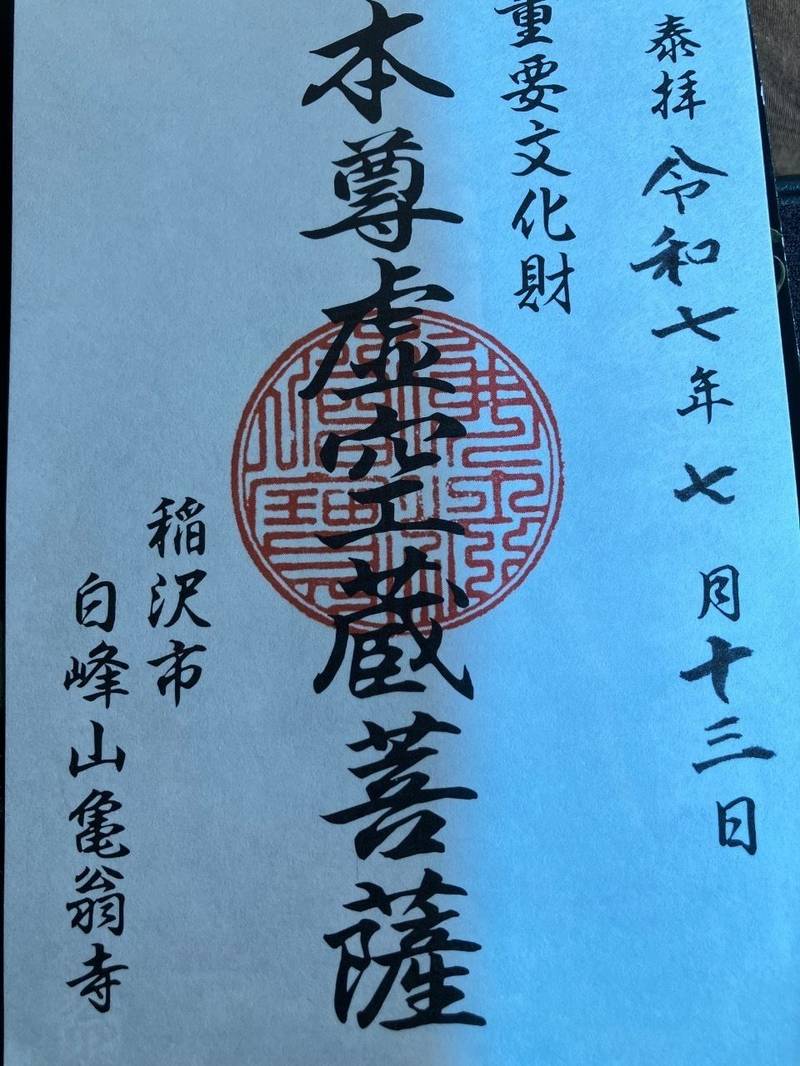 泰拝 令和七年 七月十三日
重要文化財
本尊虚空蔵菩薩
稲沢市
白峰山亀翁寺